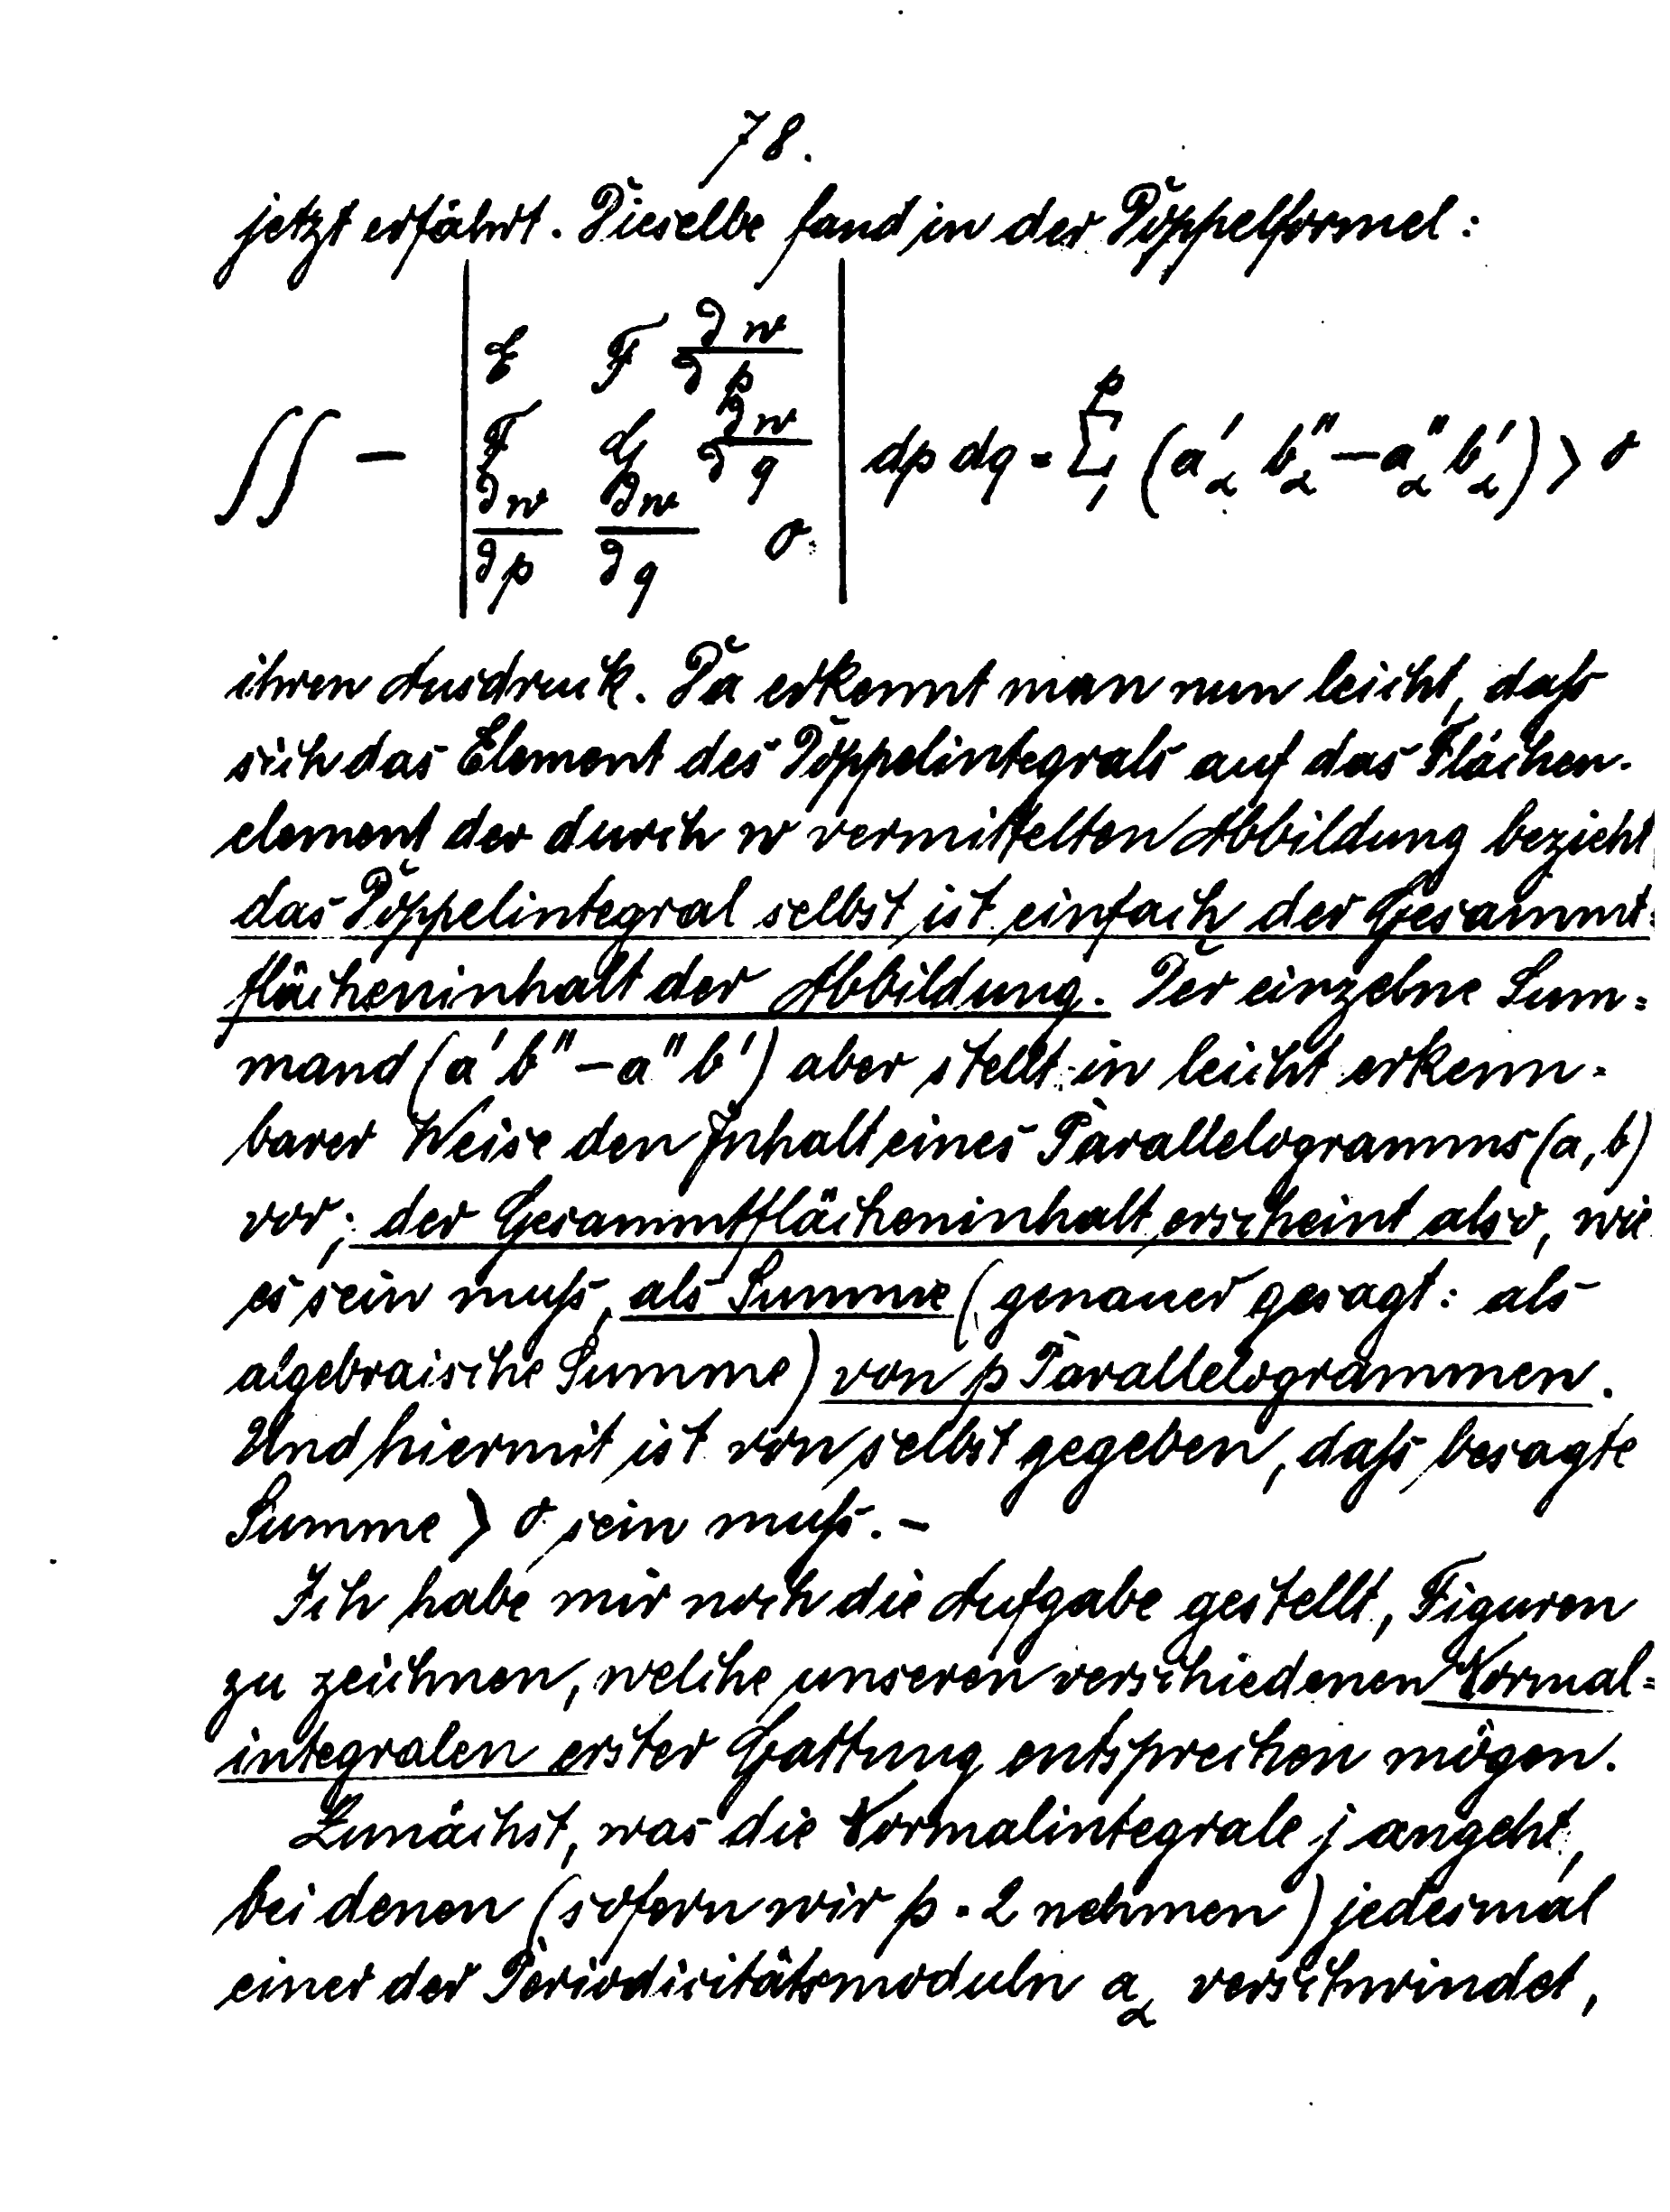 78.
jetzt erfährt. Dieselbe fand in der Doppelformel:
∫∫ − | E F ∂w/∂p ; F G ∂w/∂q ; ∂w/∂p ∂w/∂q 0 | dp dq = Σ₁ᵖ (a'_α b''_α − a''_α b'_α) > 0
ihren Ausdruck. Da erkennt man nun leicht, daß
sich das Element des Doppelintegrals auf das Flächen-
element der durch w vermittelten Abbildung bezieht
das Doppelintegral selbst ist einfach der Gesammt=
flächeninhalt der Abbildung. Der einzelne Sum=
mand (a' b'' − a'' b') aber stellt in leicht erkenn-
barer Weise den Inhalt eines Parallelogramms (a, b)
vor; der Gesammtflächeninhalt erscheint also, wie
es sein muß, als Summe (genauer gesagt: als
algebraische Summe) von p Parallelogrammen.
Und hiermit ist von selbst gegeben, daß besagte
Summe > 0 sein muß. −
Ich habe mir noch die Aufgabe gestellt, Figuren
zu zeichnen, welche unseren verschiedenen Normal=
integralen erster Gattung entsprechen mögen.
Zunächst, was die Normalintegrale j angeht,
bei denen (sofern wir p = 2 nehmen) jedesmal
einer der Periodicitätsmoduln a_α verschwindet,